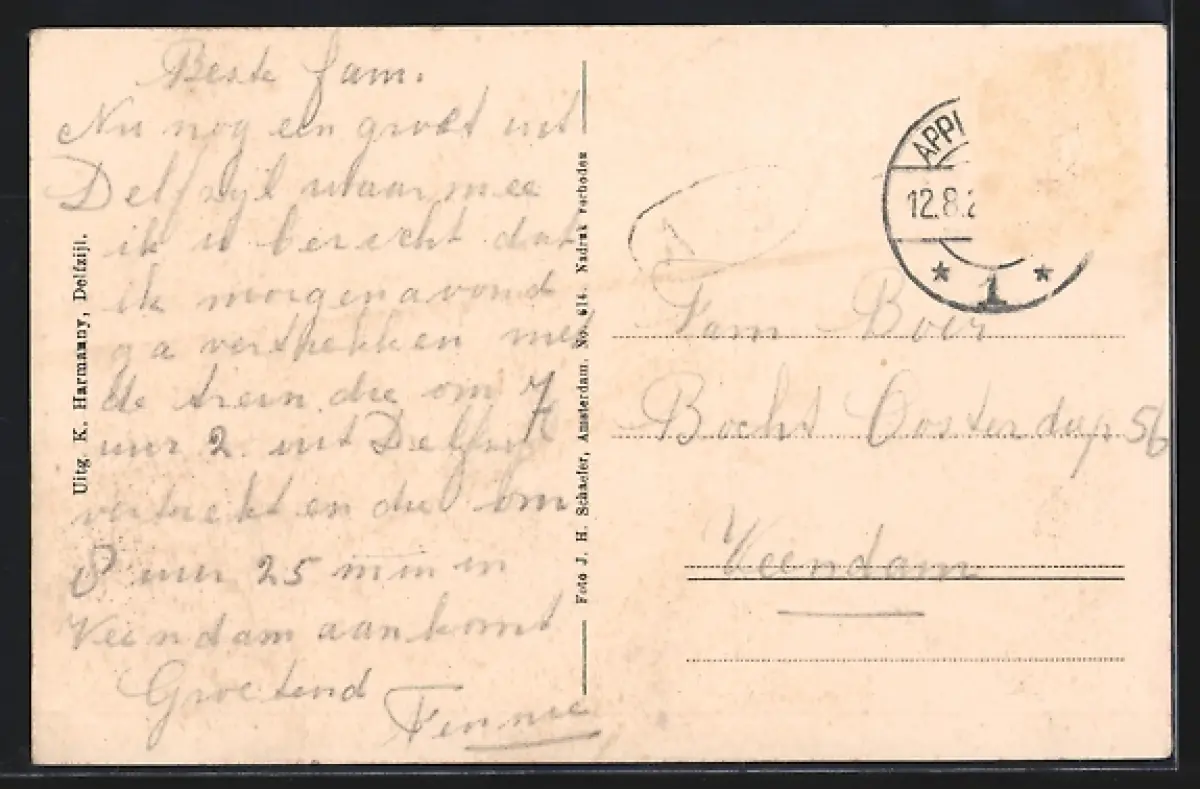 Beste fam.
Nu nog een groet uit
Delfzijl waarmee
ik u bericht dat
ik morgenavond
ga vertrekken met
de trein die om 7
uur 2. uit Delfzijl
vertrekt en die om
8 uur 25 min in
Veendam aankomt
Groetend
Fennie
Uitg. K. Harmanny, Delfzijl.
Foto J. H. Schaefer, Amsterdam. No. 614. Nadruk verboden
APPI
12.8.2
* 1 *
Fam Boer
Bocht Oosterdiep 56
Veendam